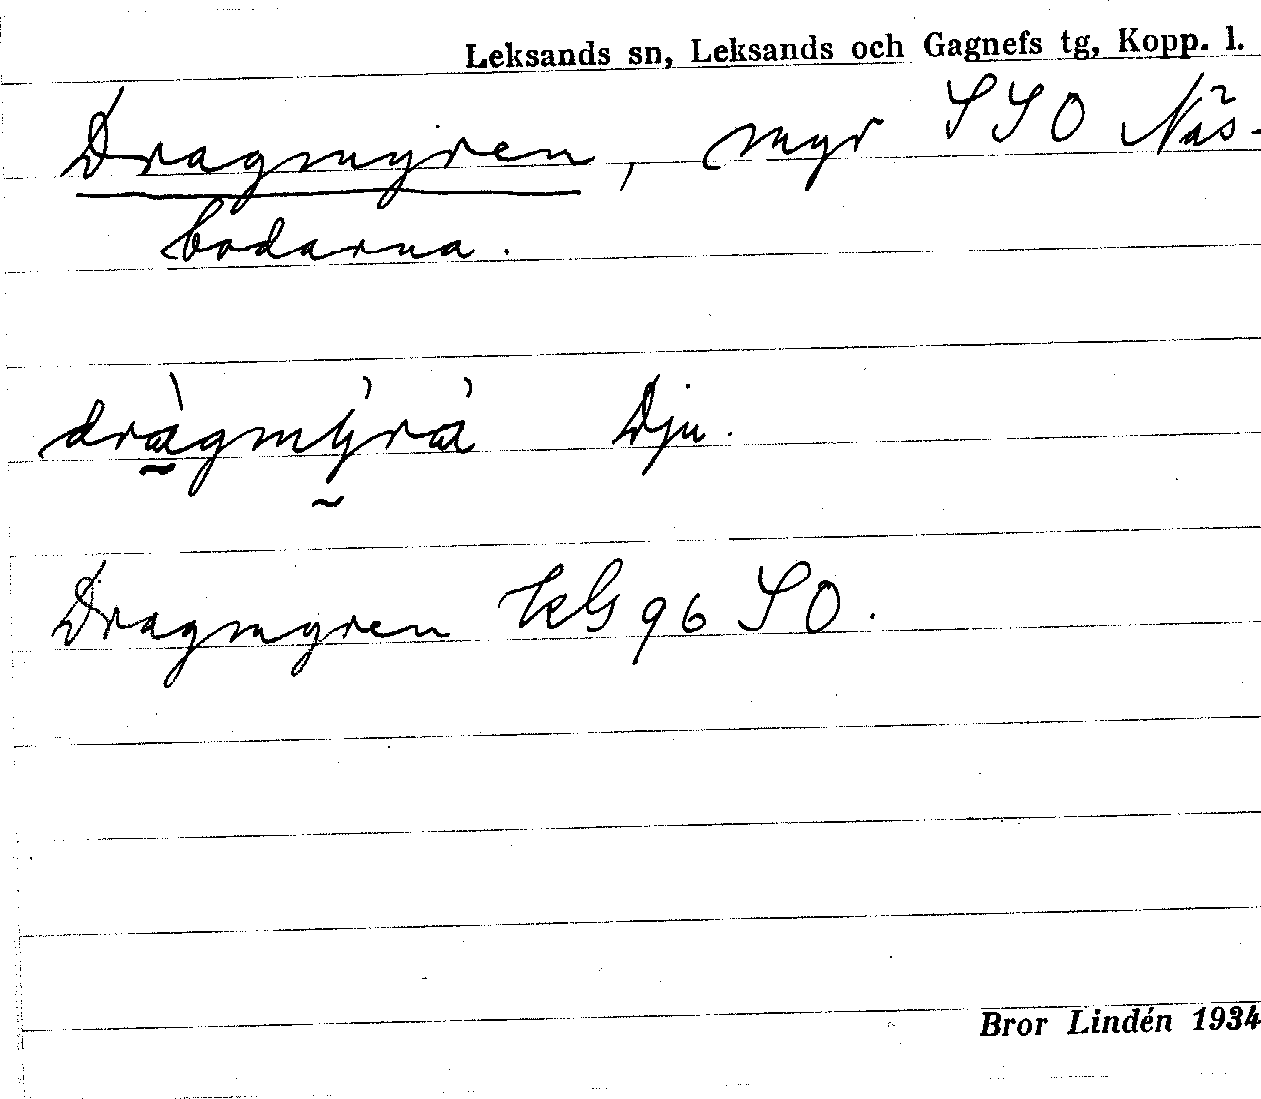 Leksands sn, Leksands och Gagnefs tg, Kopp. l.
Dragmyren, myr SSO Näs-
bodarna.
dràgmýrá Dju.
Dragmyren kG 96 SO.
Bror Lindén 1934